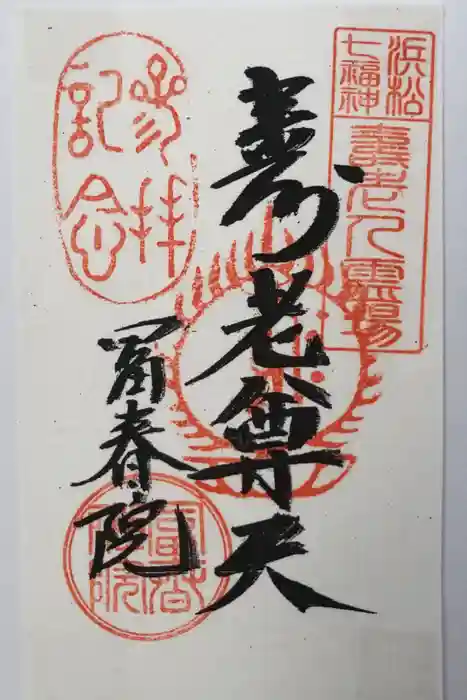 浜松
七福神
壽老人霊場
寿老尊天
参拝
記念
冨春院
冨春
院